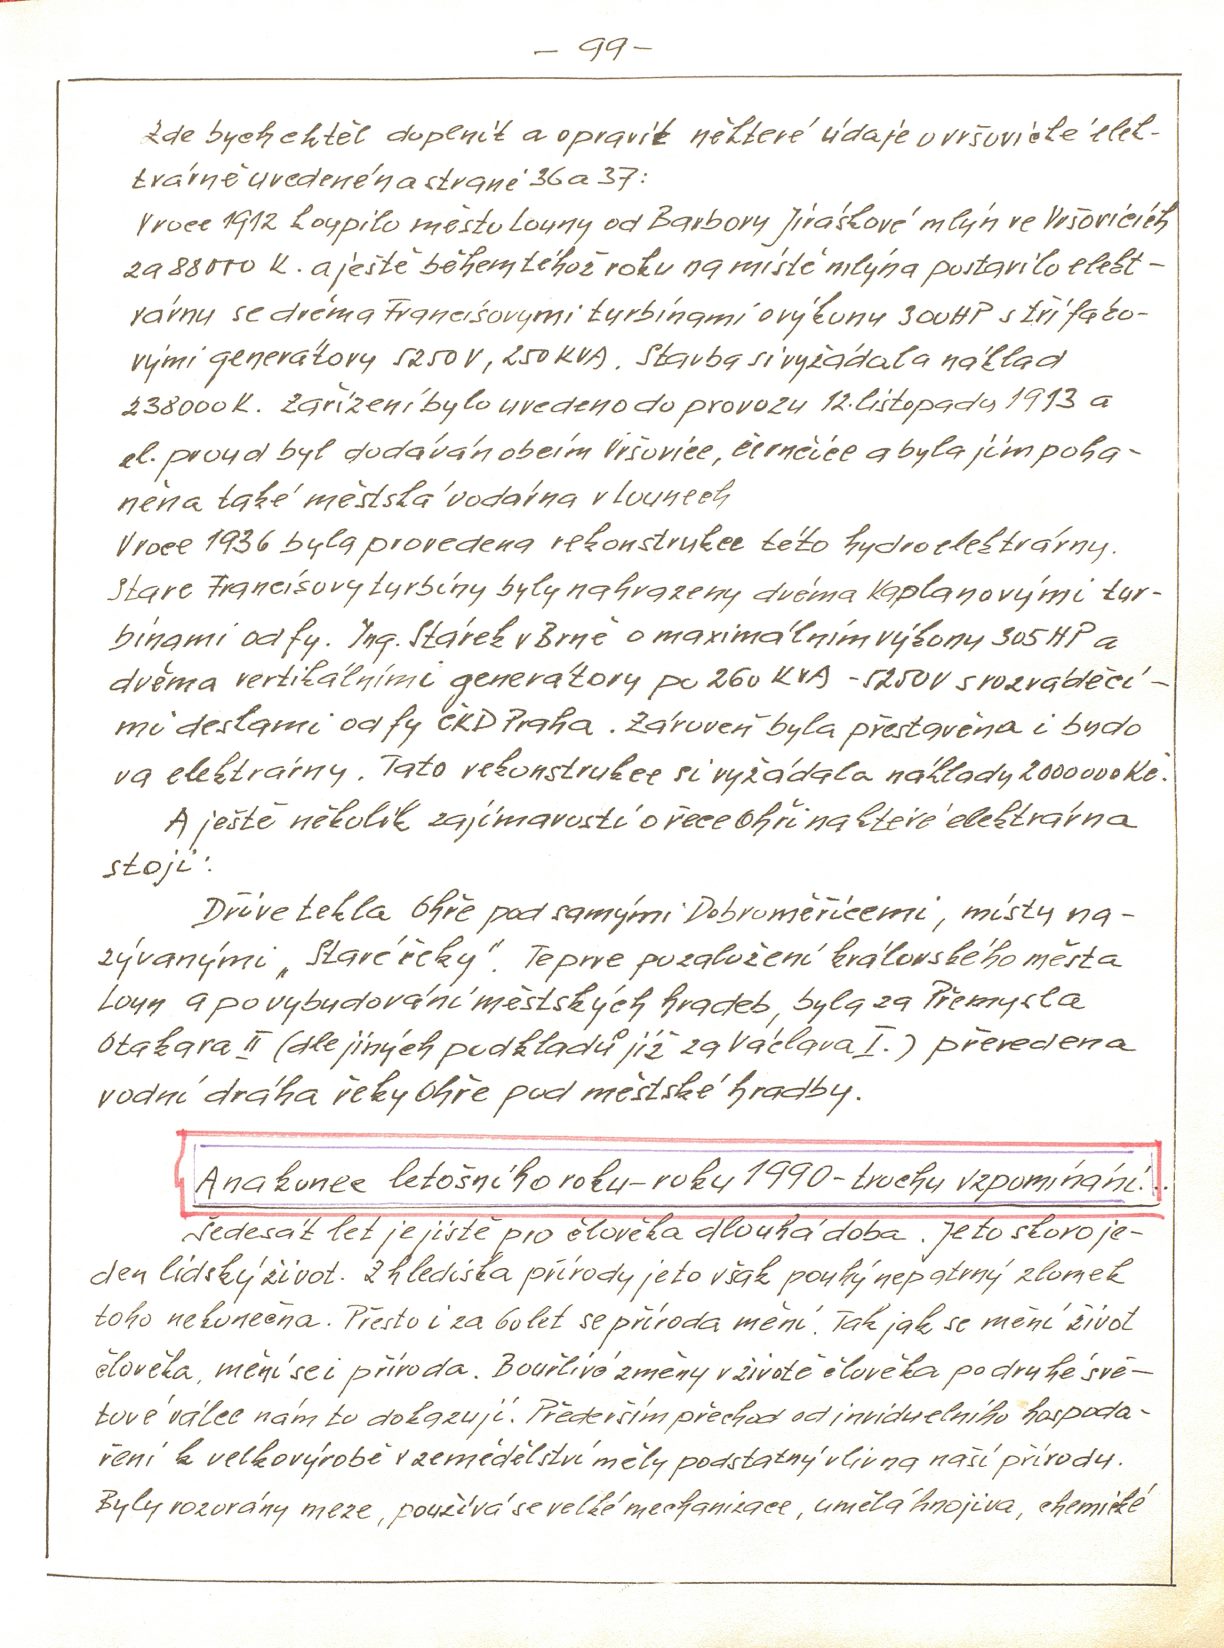 - 99 -
Zde bych chtěl doplnit a opravit některé údaje o vršovické elek-
trárně uvedené na straně 36 a 37:
V roce 1912 koupilo město Louny od Barbory Jiráskové mlýn ve Vršovicích
za 88000 K. a ještě během téhož roku na místě mlýna postavilo elekt-
rárnu se dvěma Francisovými turbínami o výkonu 300 HP s třífázo-
vými generátory 5250 V, 250 KVA. Stavba si vyžádala náklad
238000 K. Zařízení bylo uvedeno do provozu 12. listopadu 1913 a
el. proud byl dodáván obcím Vršovice, Černčice a byla jím pohá-
něna také městská vodárna v Lounech
V roce 1936 byla provedena rekonstrukce této hydroelektrárny.
Staré Francisovy turbíny byly nahrazeny dvěma Kaplanovými tur-
bínami od fy. Ing. Stárek v Brně o maximálním výkonu 305 HP a
dvěma vertikálními generátory po 260 KVA - 5250 V s rozváděčí-
mi deskami od fy ČKD Praha. Zároveň byla přestavěna i budo
va elektrárny. Tato rekonstrukce si vyžádala náklady 2000000 Kč.
A ještě několik zajímavostí o řece Ohři na které elektrárna
stojí:
Dříve tekla Ohře pod samými Dobroměřicemi, místy na-
zývanými „Staré řeky". Teprve po založení královského města
Loun a po vybudování městských hradeb, byla za Přemysla
Otakara II (dle jiných podkladů již za Václava I.) převedena
vodní dráha řeky Ohře pod městské hradby.
A na konec letošního roku - roku 1990 - trochu vzpomínání...
Šedesát let je jistě pro člověka dlouhá doba. Je to skoro je-
den lidský život. Z hlediska přírody je to však pouhý nepatrný zlomek
toho nekonečna. Přesto i za 60 let se příroda mění. Tak jak se mění život
člověka, mění se i příroda. Bouřlivé změny v životě člověka po druhé svě-
tové válce nám to dokazují. Především přechod od inviduelního hospoda-
ření k velkovýrobě v zemědělství měly podstatný vliv na naší přírodu.
Byly rozorány meze, používá se velké mechanizace, umělá hnojiva, chemické